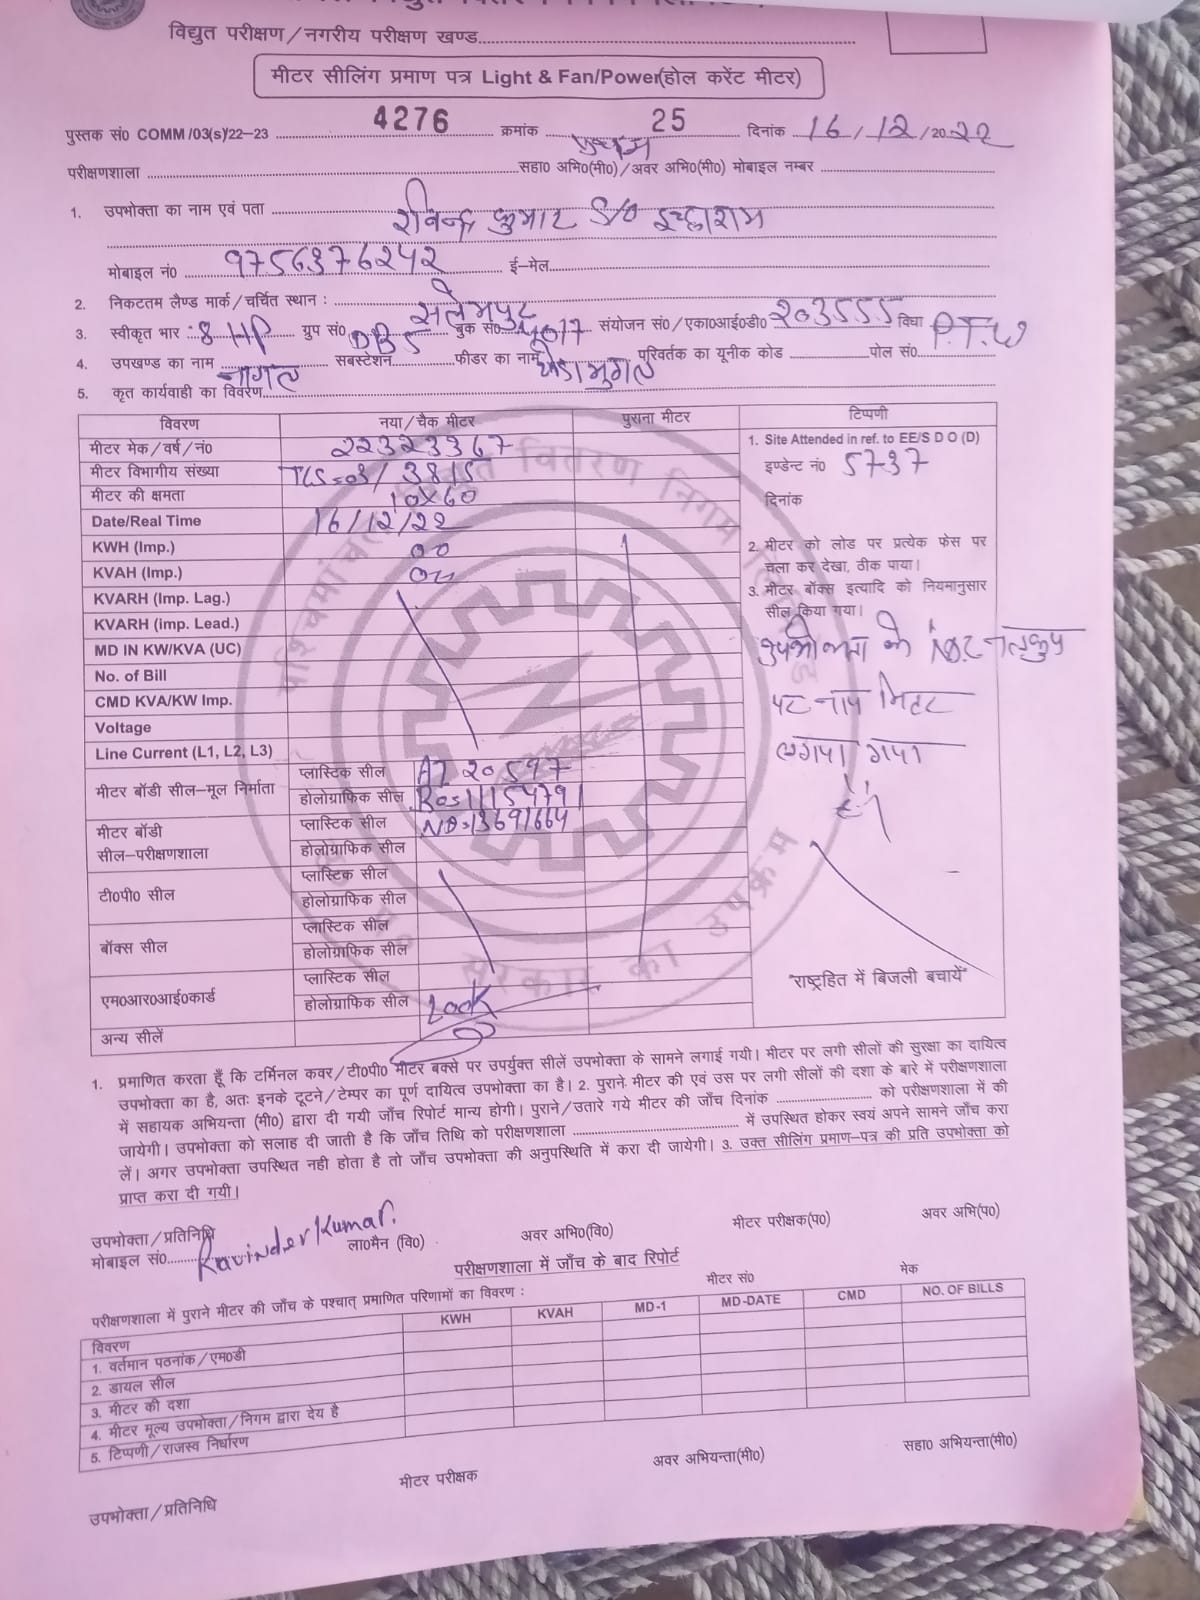 विद्युत परीक्षण/नगरीय परीक्षण खण्ड
मीटर सीलिंग प्रमाण पत्र Light & Fan/Power(होल करेंट मीटर)
पुस्तक सं0 COMM/03(s)/22-23 4276 क्रमांक 25 दिनांक 16/12/2022
परीक्षणशाला सहा0 अभि0(मी0)/अवर अभि0(मी0) मोबाइल नम्बर
1. उपभोक्ता का नाम एवं पता रविन्द्र कुमार S/o इच्छाराम
मोबाइल नं0 ९756३७6२4२ ई-मेल
2. निकटतम लैण्ड मार्क/चर्चित स्थान : सलेमपुर
3. स्वीकृत भार : 8 HP ग्रुप सं0 बुक सं0 संयोजन सं0/एका0आई0डी0 २०३५५५ विधा P.T.W
4. उपखण्ड का नाम नागल सबस्टेशन फीडर का नाम परिवर्तक का यूनीक कोड पोल सं0
5. कृत कार्यवाही का विवरण
विवरण नया/चैक मीटर पुराना मीटर टिप्पणी
मीटर मेक/वर्ष/नं0 22323367
मीटर विभागीय संख्या TCS=03/3815
मीटर की क्षमता 10x60
Date/Real Time 16/12/22
KWH (Imp.) 00
KVAH (Imp.)
KVARH (Imp. Lag.)
KVARH (imp. Lead.)
MD IN KW/KVA (UC)
No. of Bill
CMD KVA/KW Imp.
Voltage
Line Current (L1, L2, L3)
मीटर बॉडी सील-मूल निर्माता प्लास्टिक सील
होलोग्राफिक सील
मीटर बॉडी प्लास्टिक सील
सील-परीक्षणशाला होलोग्राफिक सील
टी0पी0 सील प्लास्टिक सील
होलोग्राफिक सील
बॉक्स सील प्लास्टिक सील
होलोग्राफिक सील
एम0आर0आई0कार्ड प्लास्टिक सील
होलोग्राफिक सील
अन्य सीलें
1. Site Attended in ref. to EE/S D O (D)
इण्डेन्ट नं0 5737
दिनांक
2. मीटर को लोड पर प्रत्येक फेस पर
चला कर देखा, ठीक पाया।
3. मीटर बॉक्स इत्यादि को नियमानुसार
सील किया गया।
उपभोक्ता के नलकूप
पर मिटर
लगाया गया
है।
"राष्ट्रहित में बिजली बचायें"
1. प्रमाणित करता हूँ कि टर्मिनल कवर/टी0पी0 मीटर बक्से पर उपर्युक्त सीलें उपभोक्ता के सामने लगाई गयी। मीटर पर लगी सीलों की सुरक्षा का दायित्व
उपभोक्ता का है, अतः इनके टूटने/टेम्पर का पूर्ण दायित्व उपभोक्ता का है। 2. पुराने मीटर की एवं उस पर लगी सीलों की दशा के बारे में परीक्षणशाला
में सहायक अभियन्ता (मी0) द्वारा दी गयी जाँच रिपोर्ट मान्य होगी। पुराने/उतारे गये मीटर की जाँच दिनांक को परीक्षणशाला में की
जायेगी। उपभोक्ता को सलाह दी जाती है कि जाँच तिथि को परीक्षणशाला में उपस्थित होकर स्वयं अपने सामने जाँच करा
लें। अगर उपभोक्ता उपस्थित नही होता है तो जाँच उपभोक्ता की अनुपस्थिति में करा दी जायेगी। 3. उक्त सीलिंग प्रमाण-पत्र की प्रति उपभोक्ता को
प्राप्त करा दी गयी।
उपभोक्ता/प्रतिनिधि
मोबाइल सं0 Ravinder Kumar. ला0मैन (वि0) अवर अभि0(वि0) मीटर परीक्षक(प0) अवर अभि(प0)
परीक्षणशाला में जाँच के बाद रिपोर्ट
परीक्षणशाला में पुराने मीटर की जाँच के पश्चात् प्रमाणित परिणामों का विवरण : मीटर सं0 मेक
विवरण KWH KVAH MD-1 MD-DATE CMD NO. OF BILLS
1. वर्तमान पठनांक/एम0डी
2. डायल सील
3. मीटर की दशा
4. मीटर मूल्य उपभोक्ता/निगम द्वारा देय है
5. टिप्पणी/राजस्व निर्धारण
उपभोक्ता/प्रतिनिधि मीटर परीक्षक अवर अभियन्ता(मी0) सहा0 अभियन्ता(मी0)